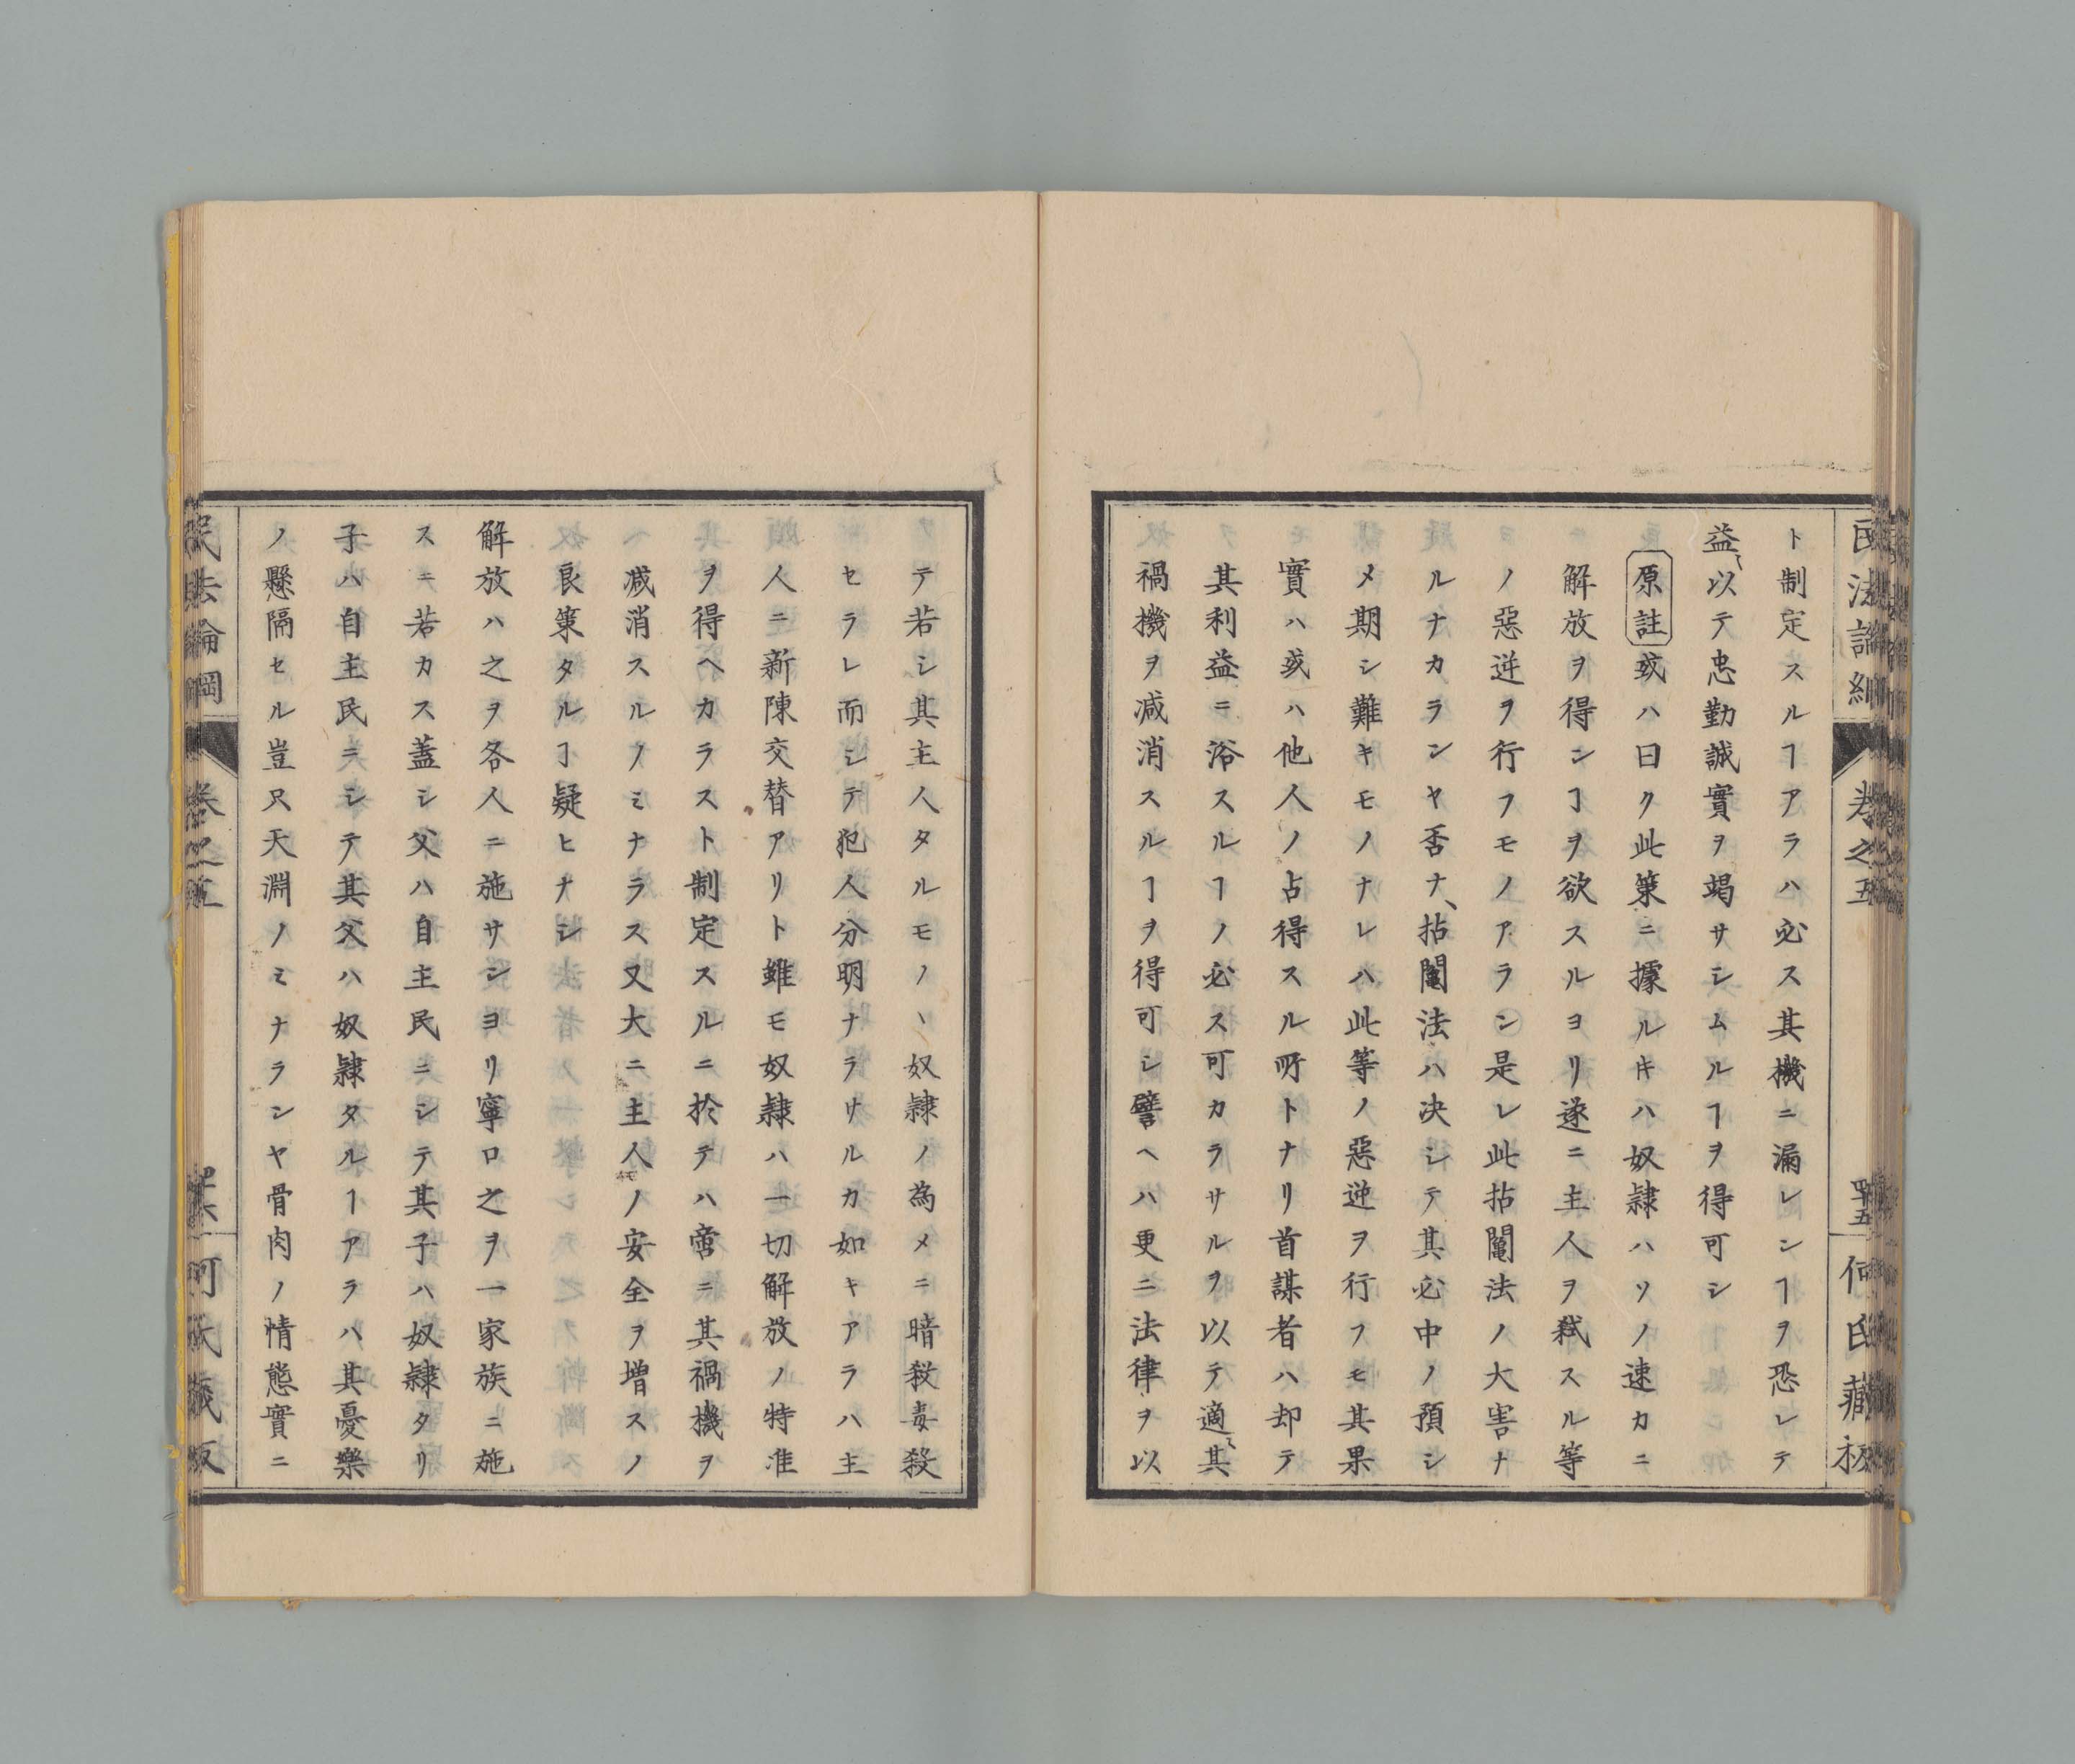 民法論綱 卷之五 四十五 何氏藏板
ト制定スルヿアラハ必ス其機ニ漏レンヿヲ恐レテ
益〻以テ忠勤誠實ヲ竭サシムルヿヲ得可シ
原註或ハ曰ク此策ニ據ルキハ奴隷ハソノ速カニ
解放ヲ得ンヿヲ欲スルヨリ遂ニ主人ヲ弑スル等
ノ惡逆ヲ行フモノアラン是レ此拈鬮法ノ大害ナ
ルナカランヤ否ナ、拈鬮法ハ决シテ其必中ノ預シ
メ期シ難キモノナレハ此等ノ惡逆ヲ行フモ其果
實ハ或ハ他人ノ占得スル所トナリ首謀者ハ却テ
其利益ニ浴スルヿノ必ス可カラサルヲ以テ適〻其
禍機ヲ减消スルヿヲ得可シ譬ヘハ更ニ法律ヲ以
テ若シ其主人タルモノヽ奴隷ノ為メニ暗殺毒殺
セラレ而シテ犯人分明ナラサルカ如キアラハ主
人ニ新陳交替アリト雖モ奴隷ハ一切解放ノ特准
ヲ得ヘカラスト制定スルニ於テハ啻ニ其禍機ヲ
减消スルノミナラス又大ニ主人ノ安全ヲ増スノ
良策タルヿ疑ヒナシ
解放ハ之ヲ各人ニ施サシヨリ寧ロ之ヲ一家族ニ施
スニ若カス蓋シ父ハ自主民ニシテ其子ハ奴隷タリ
子ハ自主民ニシテ其父ハ奴隷タルヿアラハ其憂樂
ノ懸隔セル豈只天淵ノミナランヤ骨肉ノ情態實ニ
民法論綱 卷之五 何氏藏板